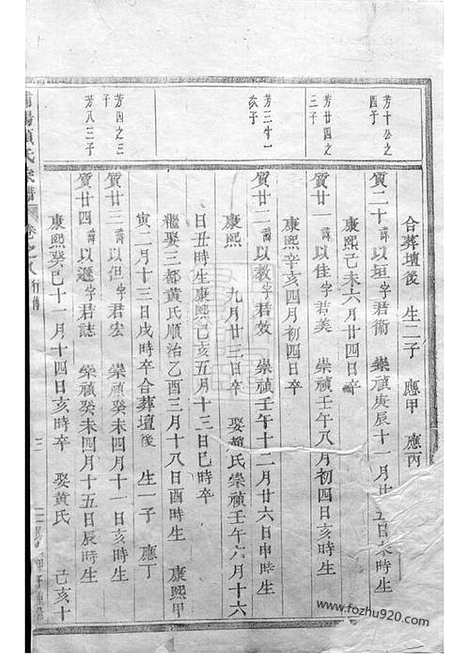 合葬壇後　生二子　應甲　應丙
芳十公之四子
質二十諱以垣字君衛　崇禎庚辰十一月廿五日未時生
康熙己未六月廿四日卒
芳廿四之三子
質廿一諱以佳字君美　崇禎壬午八月初四日亥時生
康熙辛亥四月初四日卒
芳三
次子
質廿二諱以敦字君效　崇禎壬午十二月廿六日申時生
康熙　九月廿三日卒　娶趙氏崇禎壬午六月十六
日丑時生康熙己亥五月十三日巳時卒
繼娶三都黃氏順治乙酉三月十八日酉時生　康熙甲
寅二月十三日戌時卒合葬壇後　生一子　應丁
芳四之三子
質廿三諱以但字君宏　崇禎癸未四月十一日亥時生
芳八三子
質廿四諱以遜字君誌　崇禎癸未四月十五日辰時生
康熙癸巳十一月十四日亥時卒　娶黃氏　己亥十
氏宗譜　卷之八　行傳　三
www.fozhu920.com